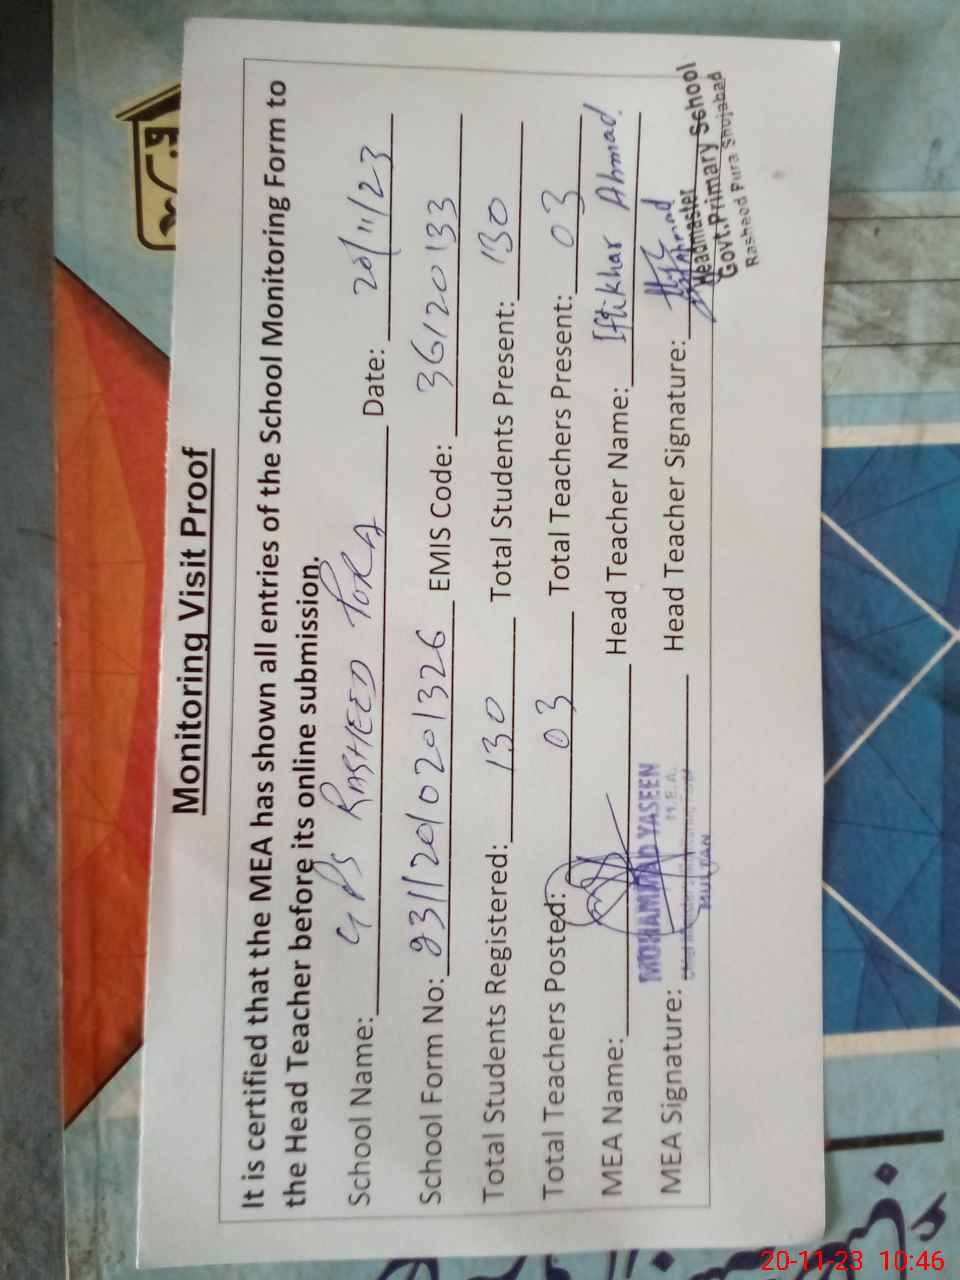 Monitoring Visit Proof
It is certified that the MEA has shown all entries of the School Monitoring Form to
the Head Teacher before its online submission.
School Name: GPS RASHEED PURA Date: 20/11/23
School Form No: 23112010201326 EMIS Code: 36120133
Total Students Registered: 130 Total Students Present: 130
Total Teachers Posted: 03 Total Teachers Present: 03
MEA Name: Head Teacher Name: Iftikhar Ahmad.
MOHAMMAD YASEEN
M.E.A.
MULTAN
MEA Signature: Head Teacher Signature:
Headmaster
Govt.Primary School
Rasheed Pura Shujabad
20-11-23 10:46